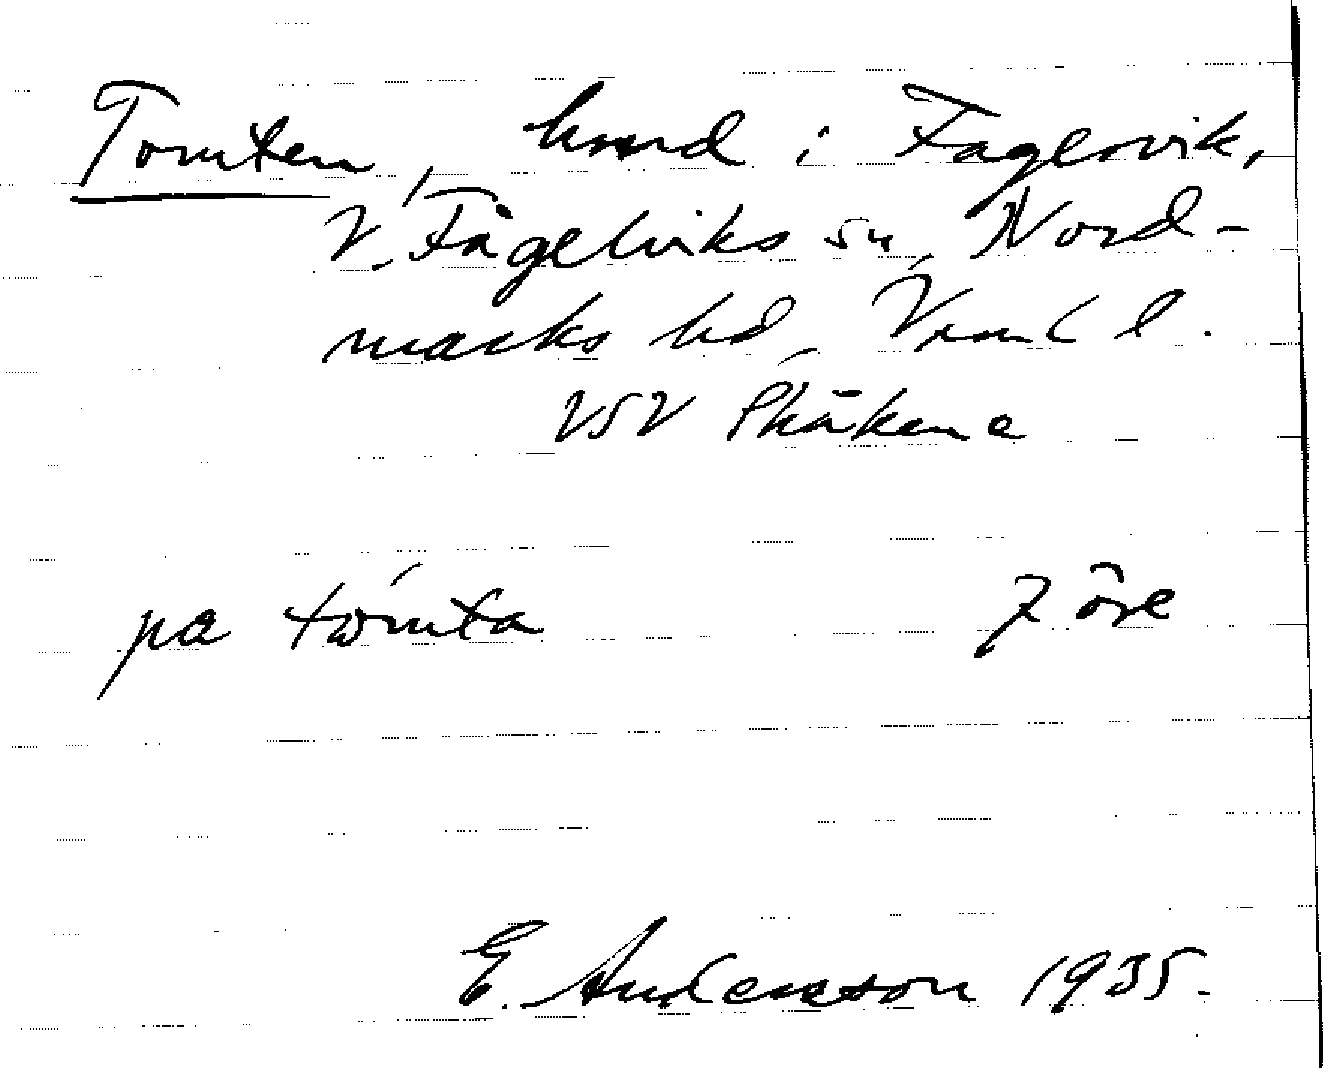 Tomten, hmd i Fagervik,
V. Fågelviks sn, Nord-
marks hd, Vrml l.
VSV Skåkene
pa tömta 7 öre
E. Andersson 1935.